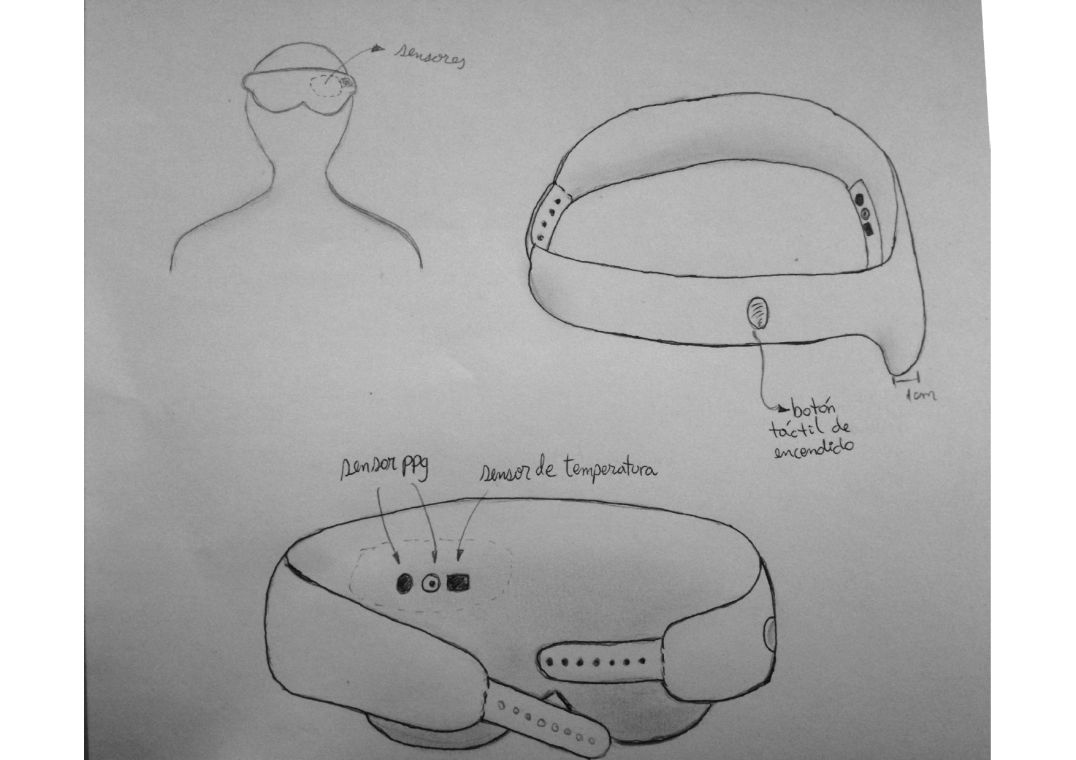 sensores
1cm
botón
táctil de
encendido
sensor ppg
sensor de temperatura